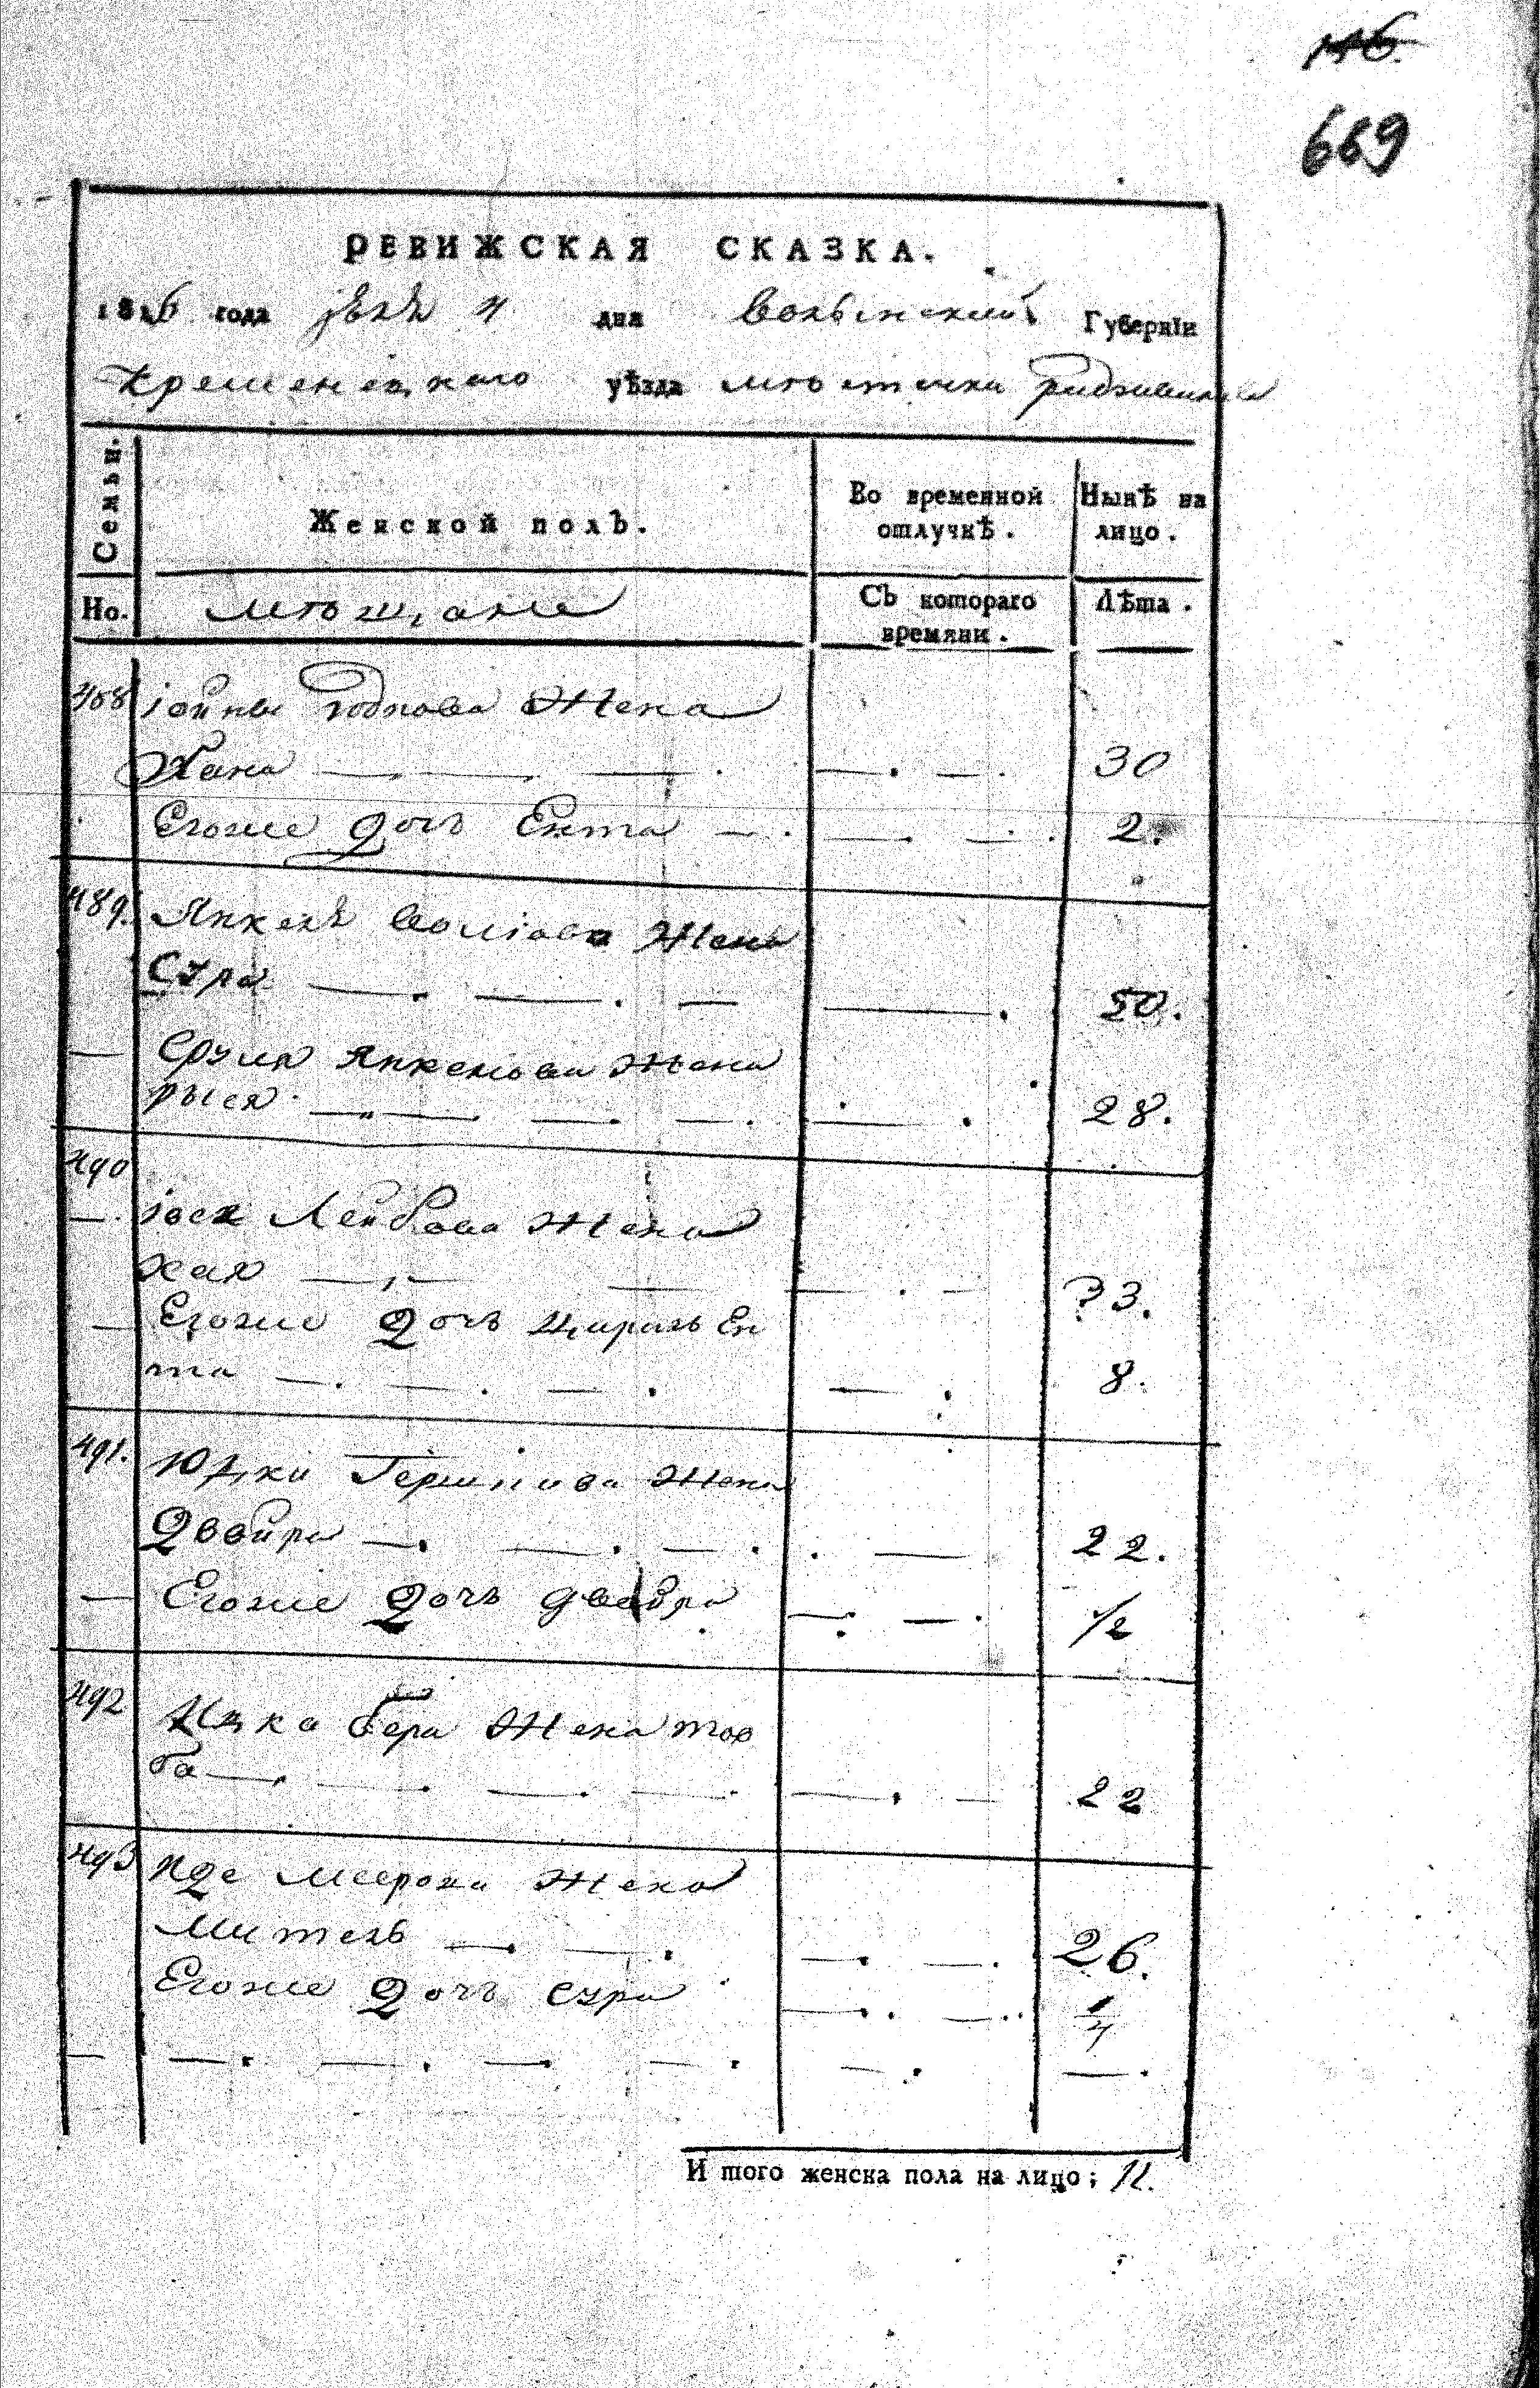 669
РЕВИЖСКАЯ СКАЗКА.
1816 года дня Волынский Губернїи
Кременецкаго уѣзда местечка радзивилова
Семьи.
Женской полъ.
Во временной отлучкѣ.
Нынѣ на лицо.
Но.
мещане
Съ котораго времяни.
Лѣта.
488 іойны жена
Хана 30
Егоже дочь Ента 2.
489. Янкель жена
Сура 50.
Сруля Янкелева жена
рыся 28.
490
іося Лейбова жена
хая 33.
Егоже дочь цирль Ен
та 8.
491. Юдки Гершкова жена
Двойра 22.
Егоже дочь 1/2
492 Ицка бера жена тов
ба 22
493 жена
Митель 26.
Егоже дочь сура 1/4
И того женска пола на лицо; 11.